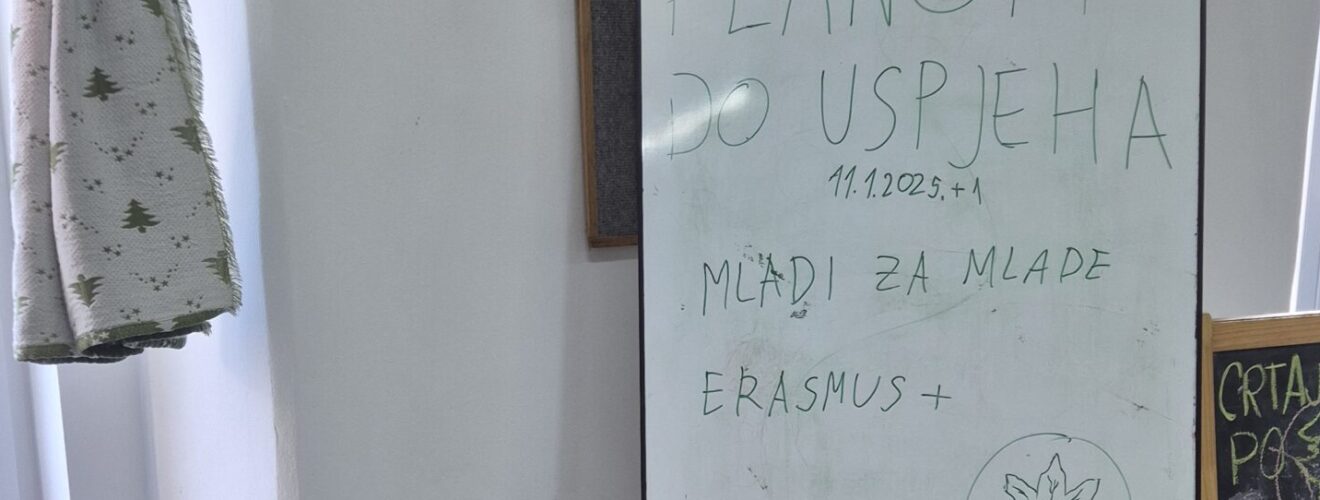 DO USPJEHA
11.1.2025.+1
MLADI ZA MLADE
ERASMUS +
CRTAJ
PO